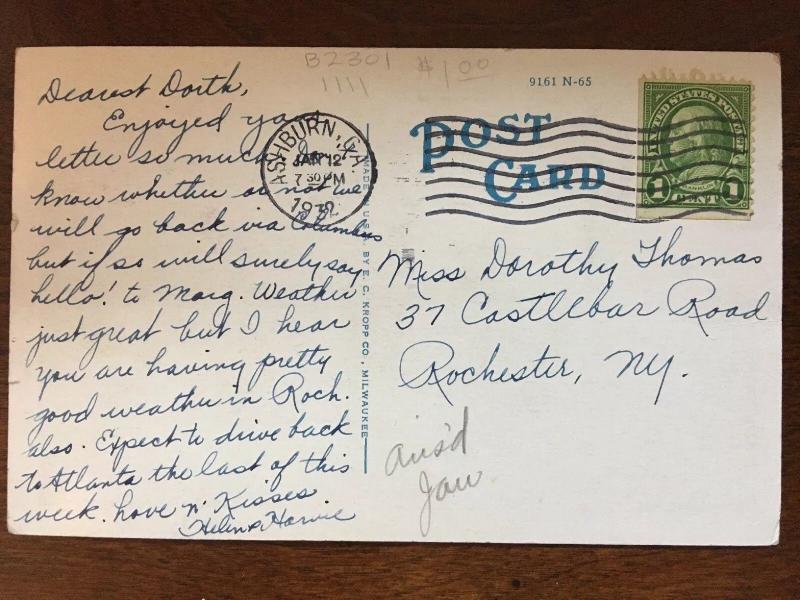 B2301 $1.00
1111
9161 N-65
Dearest Dorth,
Enjoyed
letter so much
know whether or not we
will go back via Columbus
but if so will surely say
hello! to Marg. Weather
just great but I hear
you are having pretty
good weather in Roch.
also. Expect to drive back
to Atlanta the last of this
week. Love n' Kisses
Helen & Harvie
ASHBURN, GA.
JAN 12
7 30 PM
1932
MADE IN U.S.A. BY E. C. KROPP CO., MILWAUKEE
POST
CARD
UNITED STATES POSTAGE
FRANKLIN
1 CENT 1
Miss Dorothy Thomas
37 Castlebar Road
Rochester, NY.
ans'd
Jan